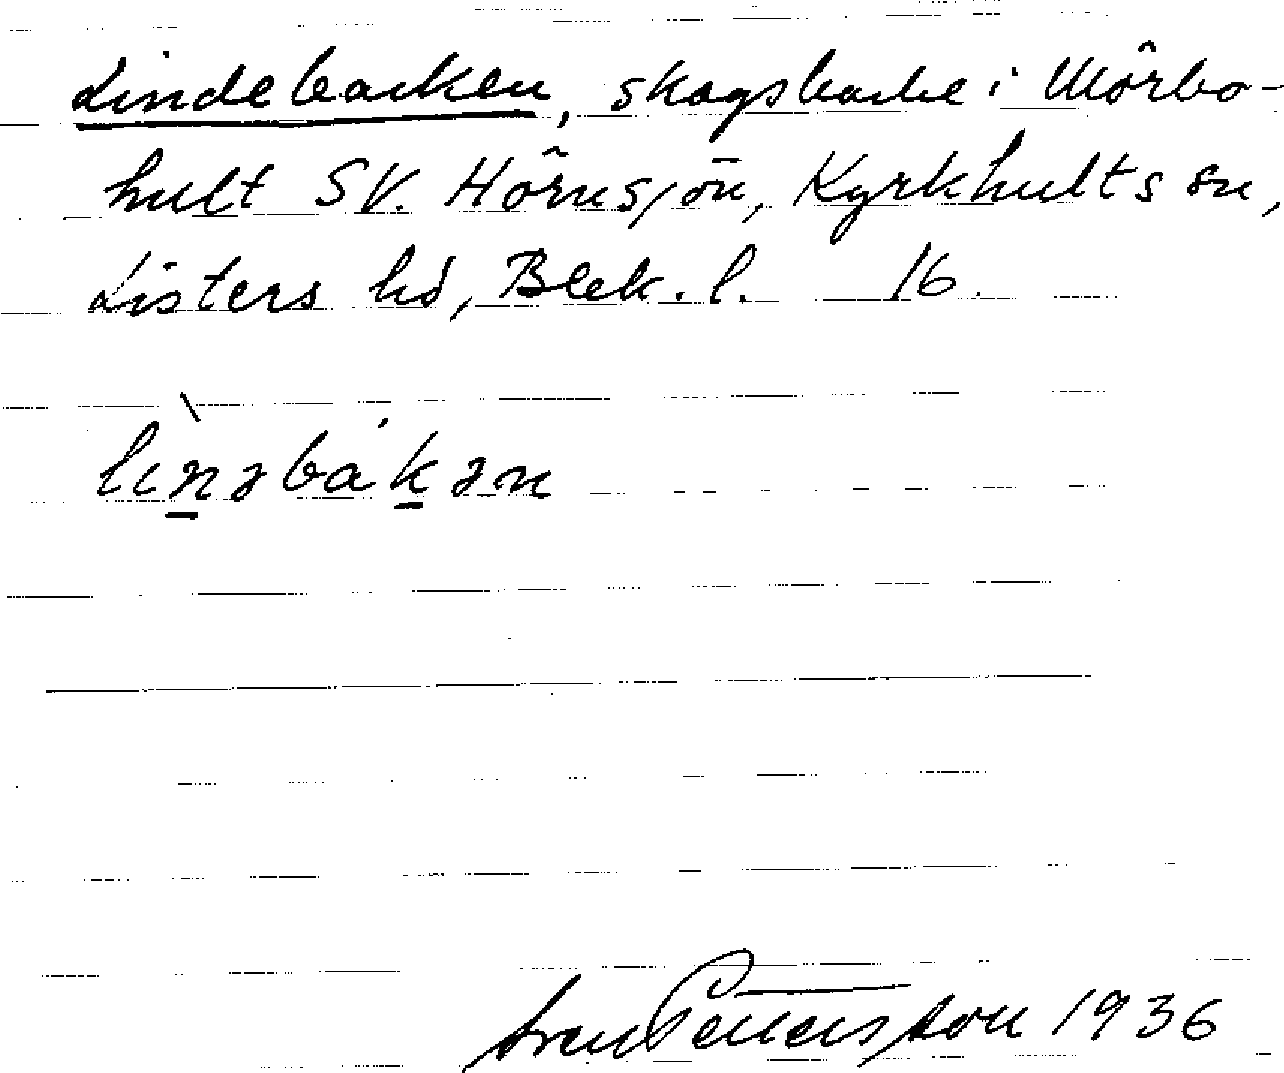 Lindebacken, skogsbacke i Mörbo-
hult SV. Hörnsjön, Kyrkhults sn,
Listers hd, Blek. l. 16.
lìnəbákən
Sven Pettersson 1936